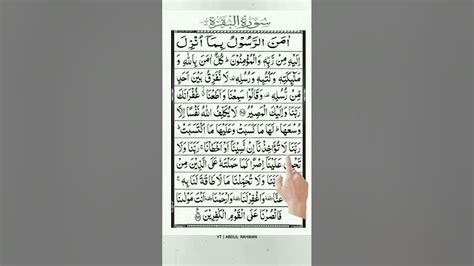 سورة البقرة
اٰمَنَ الرَّسُوْلُ بِمَاۤ اُنْزِلَ
اِلَیْهِ مِنْ رَّبِّهٖ وَالْمُؤْمِنُوْنَ ؕ كُلٌّ اٰمَنَ بِاللّٰهِ وَ
مَلٰٓئِكَتِهٖ وَكُتُبِهٖ وَرُسُلِهٖ ۫ لَا نُفَرِّقُ بَیْنَ اَحَدٍ
مِّنْ رُّسُلِهٖ ۫ وَقَالُوْا سَمِعْنَا وَاَطَعْنَا ۫ غُفْرَانَكَ
رَبَّنَا وَاِلَیْكَ الْمَصِیْرُ لَا یُكَلِّفُ اللّٰهُ نَفْسًا اِلَّا
وُسْعَهَا ؕ لَهَا مَا كَسَبَتْ وَعَلَیْهَا مَا اكْتَسَبَتْ ؕ
رَبَّنَا لَا تُؤَاخِذْنَاۤ اِنْ نَّسِیْنَاۤ اَوْ اَخْطَاْنَا ۚ رَبَّنَا وَلَا
تَحْمِلْ عَلَیْنَاۤ اِصْرًا كَمَا حَمَلْتَهٗ عَلَى الَّذِیْنَ مِنْ
رَبَّنَا وَلَا تُحَمِّلْنَا مَا لَا طَاقَةَ لَنَا بِهٖ ۚ
وَاغْفِرْ لَنَا وَارْحَمْنَا اَنْتَ مَوْلٰىنَا
فَانْصُرْنَا عَلَى الْقَوْمِ الْكٰفِرِیْنَ
YT | ABDUL RAHMAN